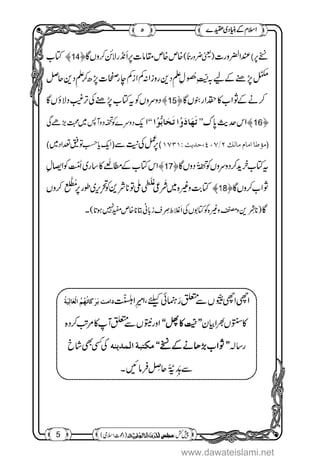 اسلام کے بنیادی عقیدے
۵
نسخے پر (عند الضرورت (یعنی ضرورتاً) خاص خاص مقامات پر انڈر لائن کروں گا ﴿14﴾ کتاب
مکمل پڑھنے کے لیے بہ نیّتِ حصولِ علمِ دین روزانہ کم از کم چار صفحات پڑھ کر علم دین حاصل
کرنے کے ثواب کا حقدار بنوں گا ﴿15﴾ دوسروں کو یہ کتاب پڑھنے کی ترغیب دلاؤں گا
﴿16﴾ اس حدیثِ پاک "تَهَادَوْا تَحَابُّوْا" ایک دوسرے کو تحفہ دو آپس میں محبت بڑھے گی
(مؤطا امام مالک ۴۰۷/۲، حدیث: ۱۷۳۱) پر عمل کی نیت سے (ایک یا حسبِ توفیق تعداد میں)
یہ کتاب خرید کر دوسروں کو تحفۃً دوں گا ﴿17﴾ اس کتاب کے مطالعے کا ساری اُمت کو ایصالِ
ثواب کروں گا ﴿18﴾ کتابت وغیرہ میں شرعی غلطی ملی تو ناشرین کو تحریری طور پر مُطّلع کروں
گا (ناشرین و مصنف وغیرہ کو کتابوں کی اغلاط صرف زبانی بتانا خاص مفید نہیں ہوتا)۔
اچھی اچھی نیّتوں سے متعلق رہنمائی کیلئے، امیرِ اہلسنّت دامت برکاتہم العالیہ
کا سنّتوں بھرا بیان "نیّت کا پھل" اور نیتوں سے متعلق آپ کا مرتب کردہ
رسالہ "ثواب بڑھانے کے نسخے" مکتبۃ المدینہ کی کسی بھی شاخ
سے ہدِیّۃً حاصل فرمائیں۔
5
www.dawateislami.net